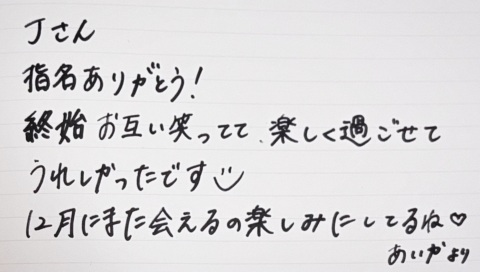 Jさん
指名ありがとう!
終始 お互い笑ってて、楽しく過ごせて
うれしかったです
12月にまた会えるの楽しみにしてるね♡
あいかより